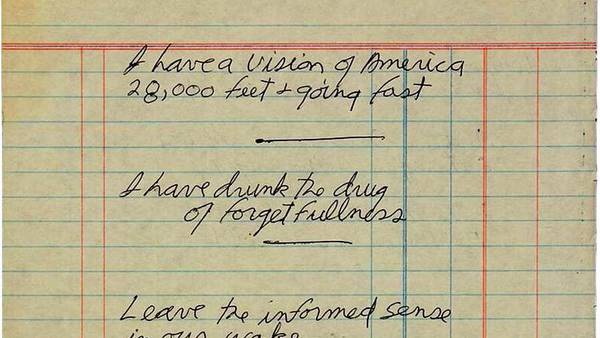 I have a vision of America
28,000 feet & going fast
I have drunk the drug
of forgetfullness
Leave the informed sense
in our wake